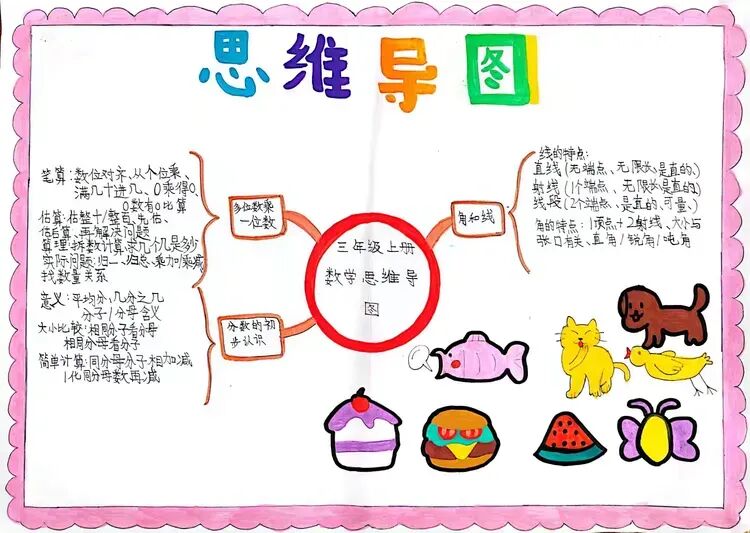 思维导图
三年级上册
数学思维导
图
多位数乘
一位数
笔算:数位对齐、从个位乘、
满几十进几、0乘得0、
0数有0比算
估算:估整十/整百、先估、
估后算、再解决问题
算理:拆数计算求几个几是多少
实际问题:归一、归总、乘加/乘减
找数量关系
分数的初
步认识
意义:平均分,几分之几
分子/分母含义
大小比较:相同分子看分母
相同分母看分子
简单计算:同分母分子相加减
1化同分母数再减
角和线
线的特点:
直线(无端点、无限长是直的、)
射线(1个端点、无限长是直的)
线段(2个端点、是直的、可量、)
角的特点:1顶点+2射线、大小与
张口有关、直角/锐角/吨角